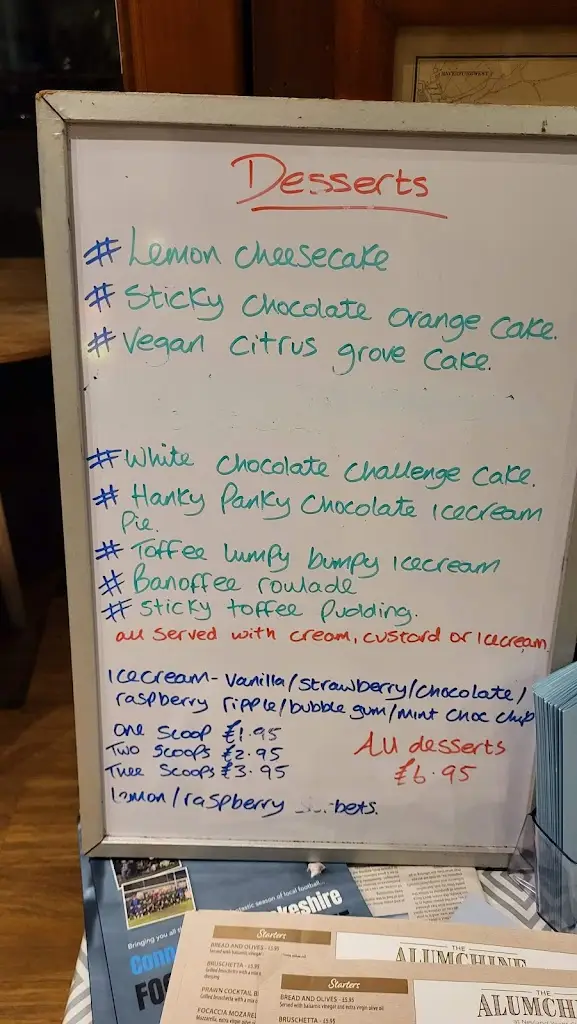 Desserts
# Lemon cheesecake
# Sticky chocolate orange cake.
# Vegan citrus grove cake.
# White chocolate challenge cake.
# Hanky Panky chocolate icecream
Pie.
# Toffee lumpy bumpy icecream
# Banoffee roulade
# Sticky toffee pudding.
all served with cream, custard or icecream
Icecream - Vanilla/strawberry/chocolate/
raspberry ripple/bubble gum/mint choc chip
One scoop £1.95
Two scoops £2.95
Three scoops £3.95
All desserts
£6.95
lemon/raspberry
Bringing you all
eshire
FO
Starters
BREAD AND OLIVES - £5.95
BRUSCHETTA - £5.95
PRAWN COCKTAIL
FOCACCIA
THE
ALUMCHINE
Starters
BREAD AND OLIVES - £5.95
Served with balsamic vinegar and extra virgin olive oil
BRUSCHETTA
THE
ALUMCH